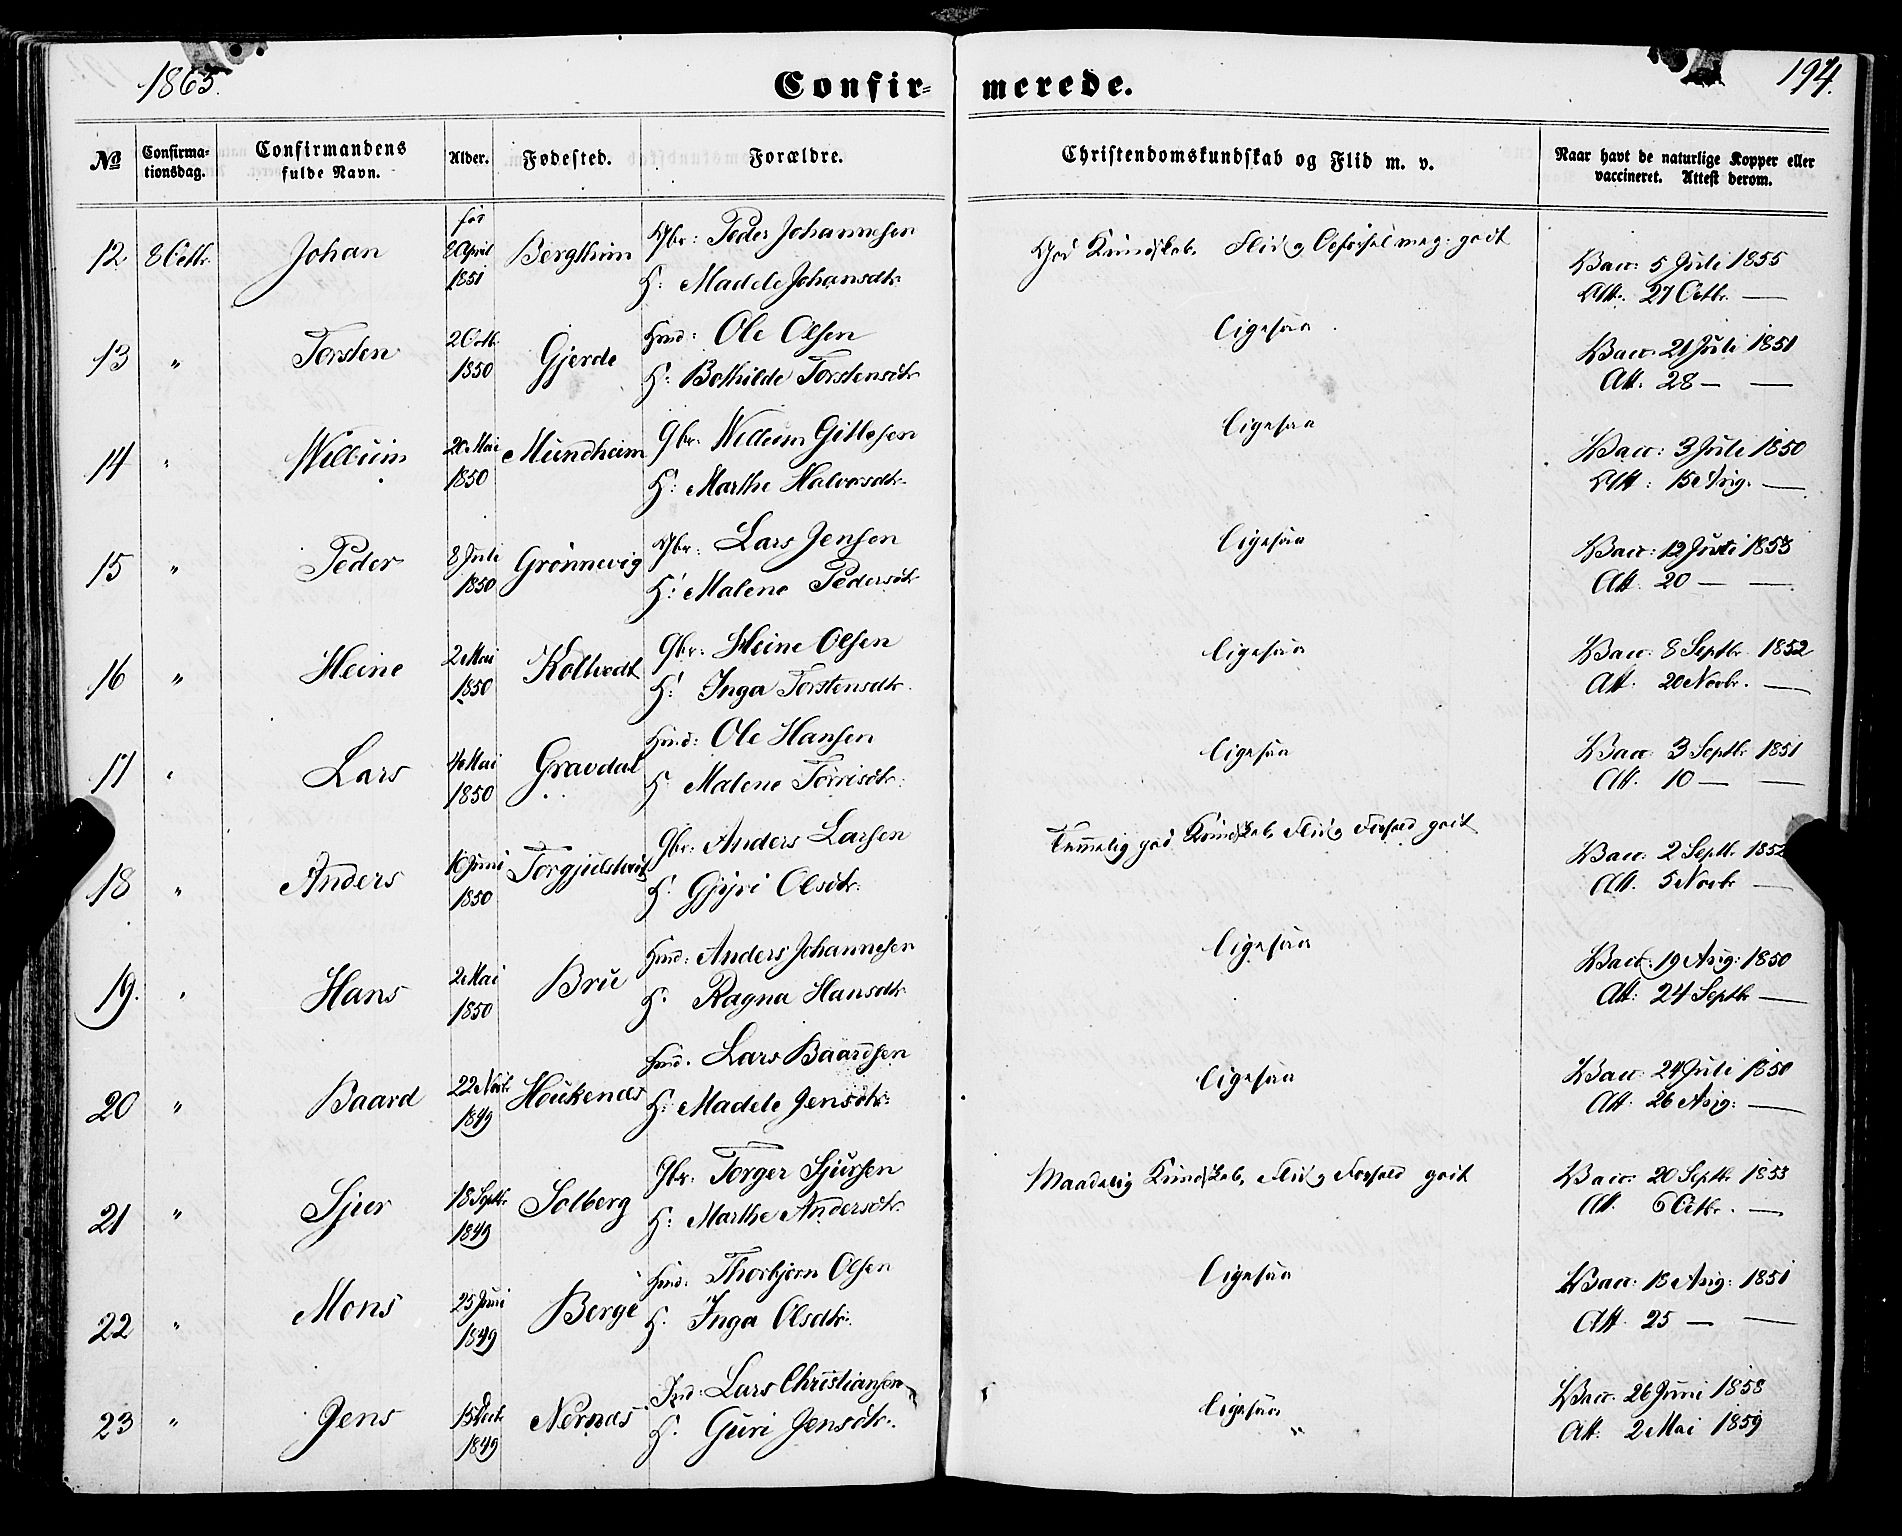 1865.
Confir-
merede.
194.
No
Confirma-
tionsdag.
Confirmandens
fulde Navn.
Alder.
Fødested.
Forældre.
Christendomskundskab og Flid m. v.
Naar havt de naturlige Kopper eller
vaccineret. Attest derom.
12 8 Octbr. Johan 8 April 1851 Bergtheim Gbr: Peder Johannesen
H: Madele Johansdtr.
God Kundskab. Flid og Opførsel meg: godt
Vacc: 5 Juli 1855
Att. 27 Octbr. —
13 " Torsten 2 Octb. 1850 Gjerde Hmd: Ole Olsen
H: Bothilde Torstensdtr
Ligesaa
Vacc. 21 Juli 1851
Att. 28 — —
14 " Willum 20 Mai 1850 Mundheim Gbr. Willum Gittlesen
H: Marthe Halvorsdtr.
Ligesaa
Vacc: 3 Juli 1850
Att: 15 Aug. —
15 " Peder 8 Juli 1850 Grønnevig Gbr: Lars Jensen
H: Malene Pedersdtr
Ligesaa
Vacc: 12 Juli 1853
Att. 20 — —
16 " Heine 2 Mai 1850 Koltvedt Gbr: Heine Olsen
H: Inga Torstensdtr.
Ligesaa
Vacc. 8 Septbr. 1852
Att. 20 Novbr. —
17 " Lars 4 Mai 1850 Gravdal Hmd: Ole Hansen
H Malene Torrisdtr:
Ligesaa
Vacc. 3 Septbr 1851
Att. 10 — —
18 " Anders 16 Juni 1850 Gbr: Anders Larsen
H. Gjyri Olsdtr.
Temmelig god Kundskab, Flid og Forhold godt
Vacc: 2 Septb. 1852
Att. 5 Novbr —
19. " Hans 2 Mai 1850 Brue Hmd: Anders Johannesen
H. Ragna Hansdtr.
Ligesaa
Vacc: 19 Aug: 1850
Att: 24 Septbr —
20 " Baard 22 Novb. 1849 Houkenæs Hmd. Lars Baardsen
H: Madele Jensdtr:
Ligesaa
Vacc: 24 Juli 1850
Att. 26 Aug: —
21 " Sjur 18 Septbr. 1849 Solberg Gbr. Torger Sjursen
H: Marthe Andersdtr.
Maadelig Kundskab, Flid og Forhold godt
Vacc: 20 Septbr 1853
Att. 6 Octbr. —
22 " Mons 25 Juni 1849 Berge Hmd: Thorbjørn Olsen
H. Inga Olsdtr.
Ligesaa
Vacc: 13 Aug: 1851
Att. 25 — —
23 " Jens 1849 Nernæs Lars Christiansen
H. Guri Jensdtr.
Ligesaa
Vacc. 26 Juni 1858
Att. 2 Mai 1859